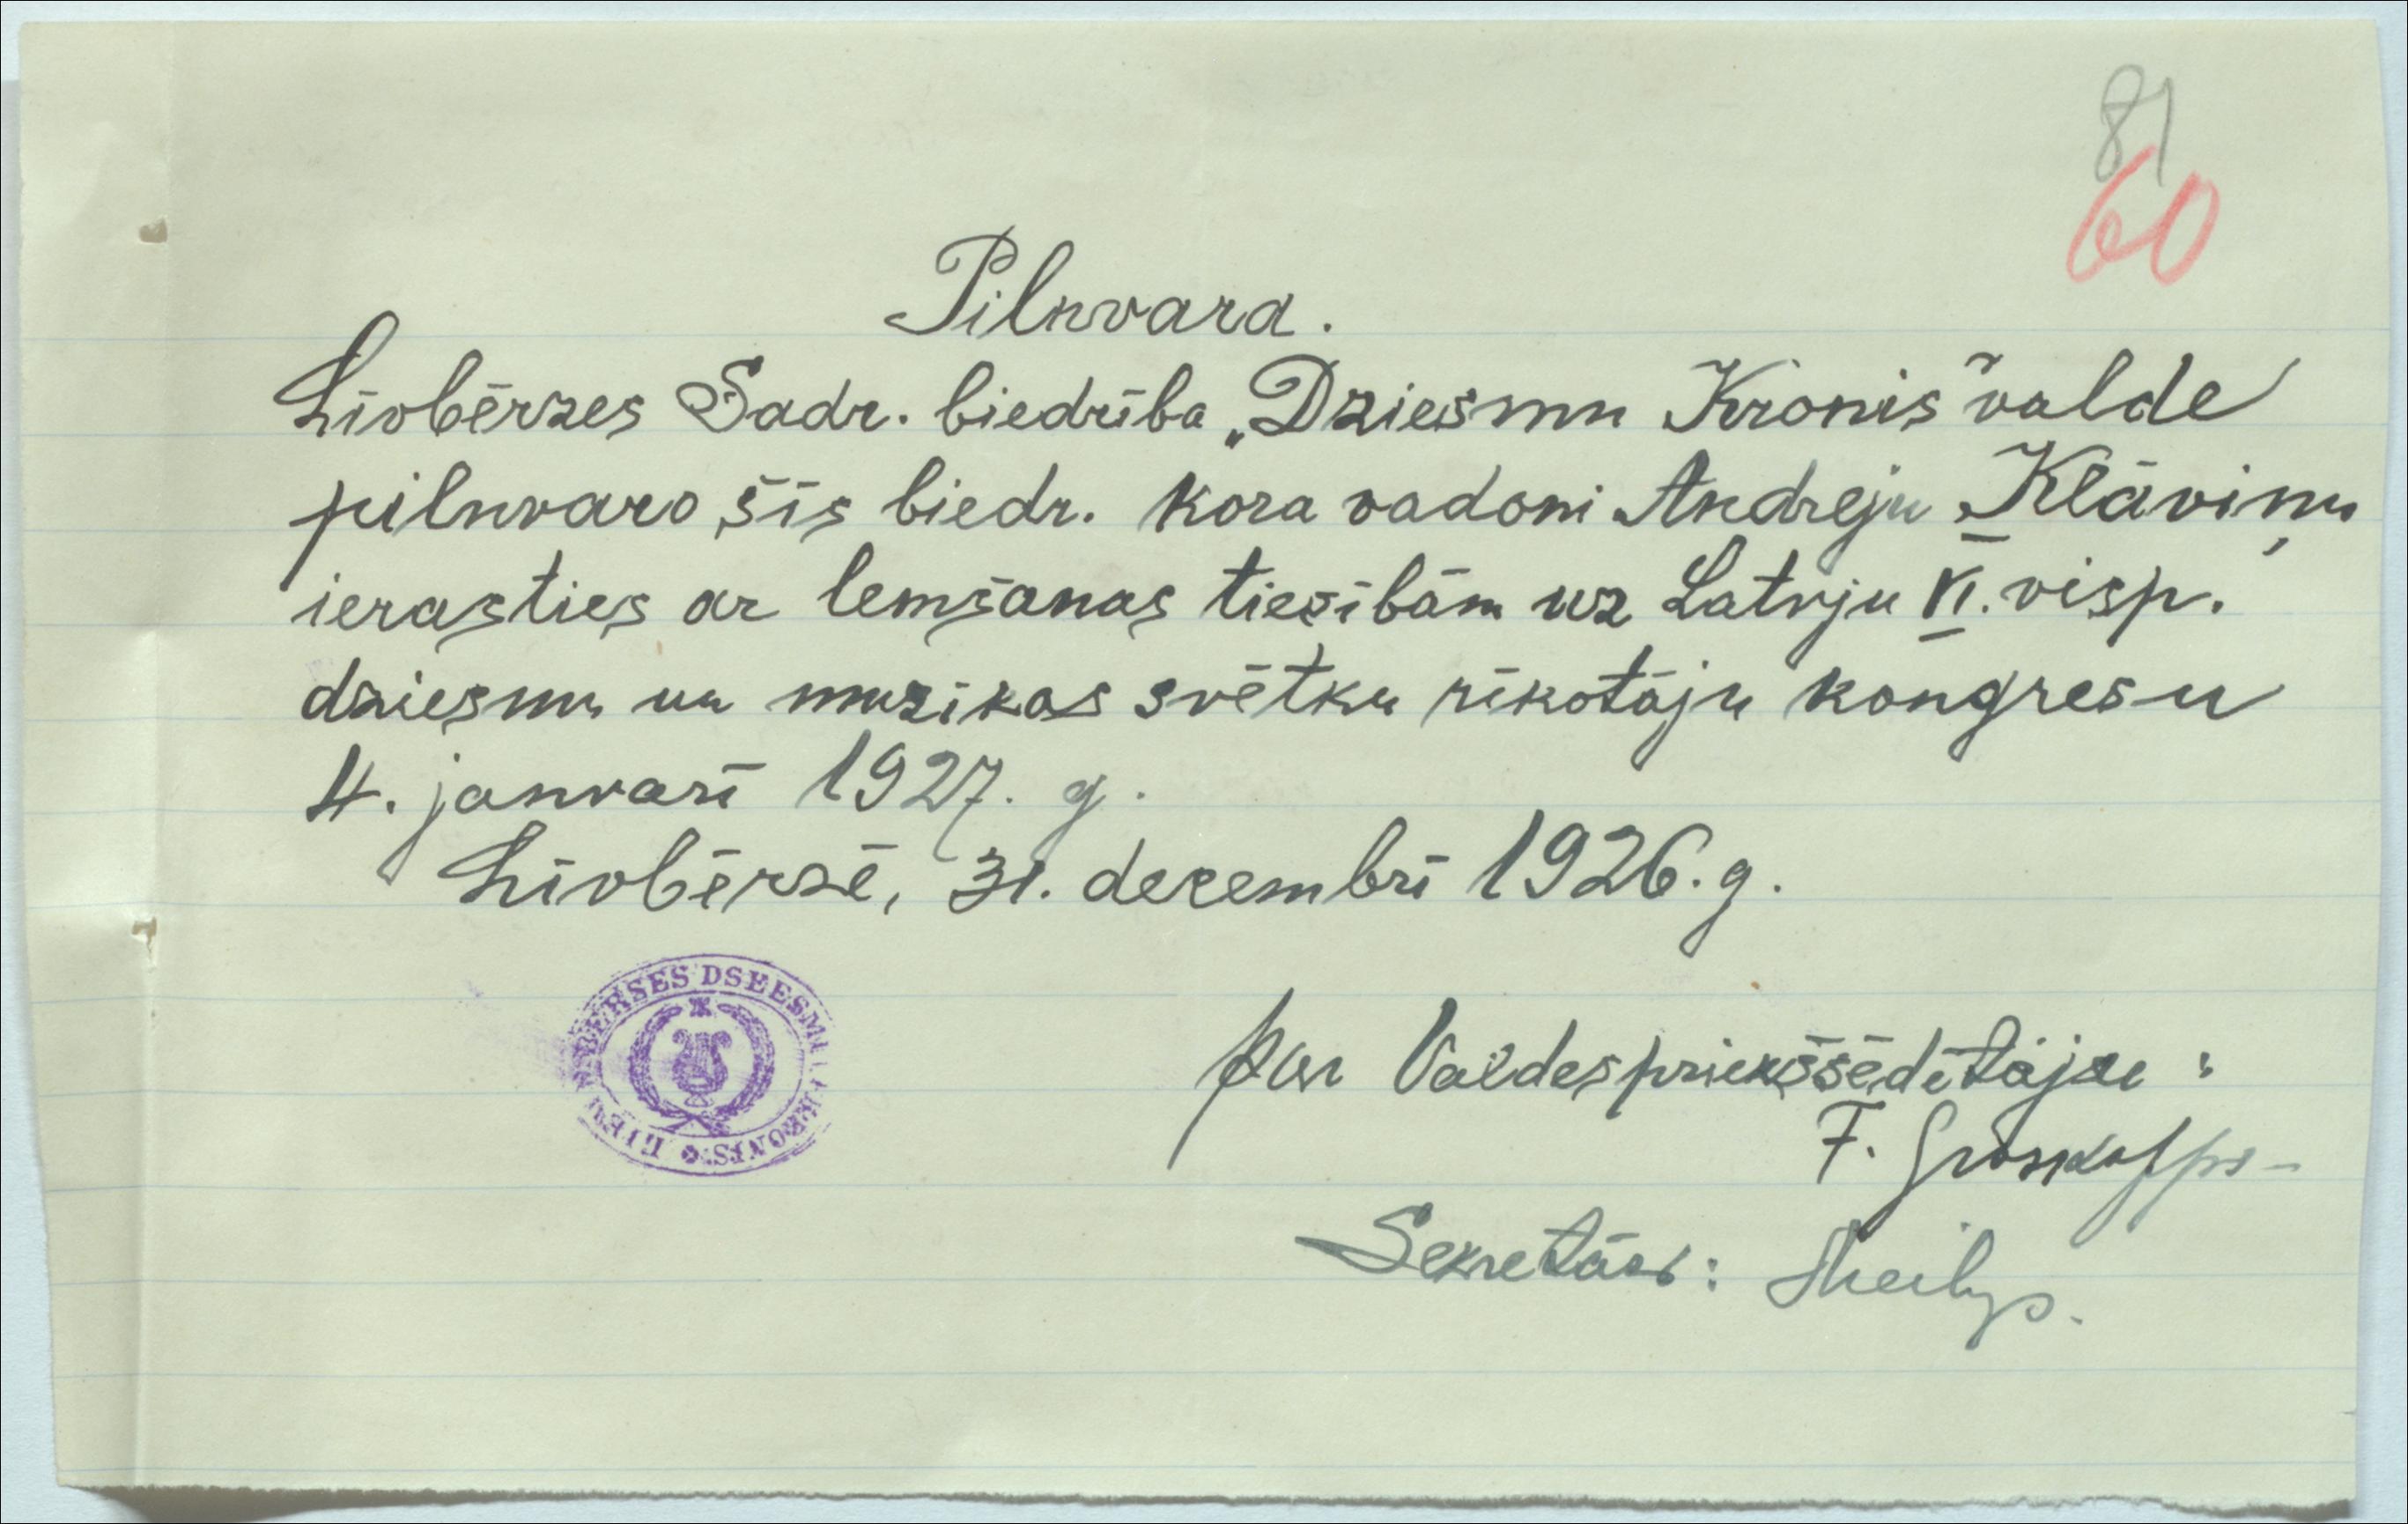 81
60
Pilnvara.
Līvbērzes Sadr. biedrība „Dziesmu Kronis” valde
pilnvaro šīs biedr. kora vadoni Andreju Kļāviņu
ierasties ar lemšanas tiesībām uz Latvju VI. visp.
dziesmu un muzikas svētku rīkotāju kongresu
4. janvarī 1927. g.
Līvbērzē, 31. decembrī 1926. g.
BERSES DSEESMU KRONIS
par Valdes priekšsēdētāju:
F.
Sekretārs: